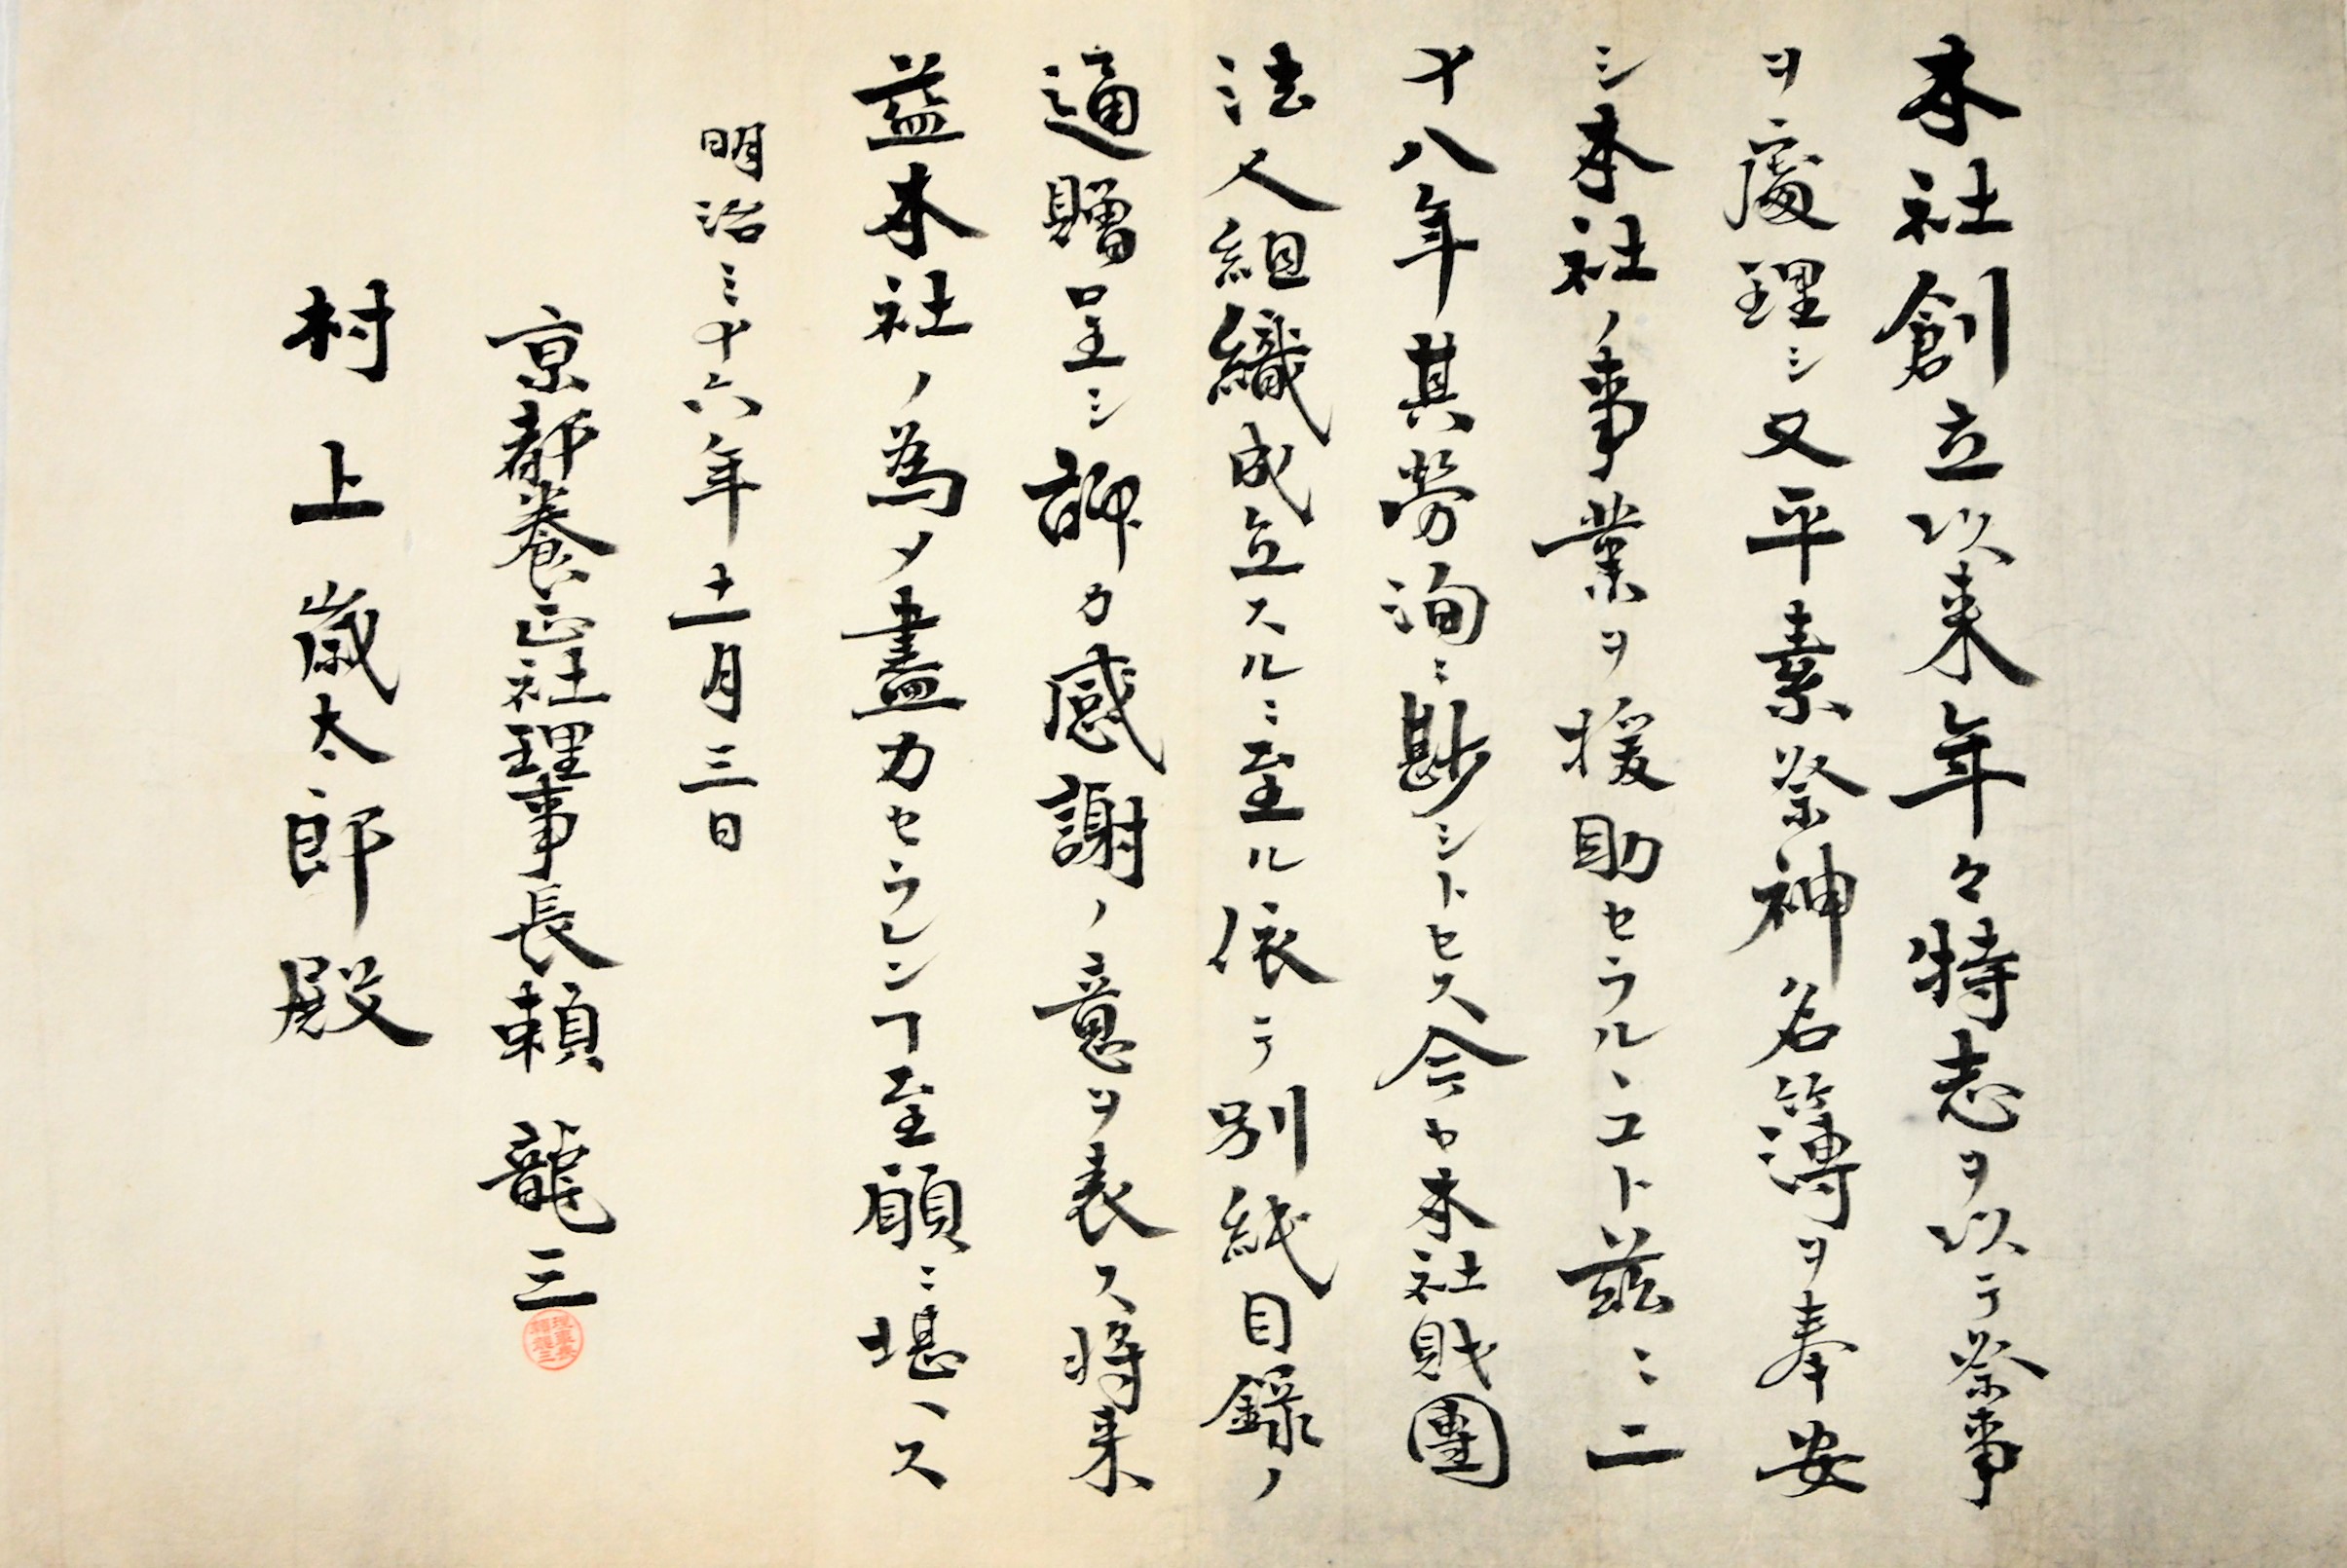 本社創立以来年々特志ヲ以テ祭事
ヲ處理シ又平素祭神名簿ヲ奉安
シ本社ノ事業ヲ援助セラルヽコト茲ニ二
十八年其勞洵ニ尠シトセス今ヤ本社財團
法人組織成立スルニ至ル依テ別紙目録ノ
通贈呈シ聊カ感謝ノ意ヲ表ス将来
益本社ノ為メ盡力セラレンヿ至願ニ堪ヘス
明治三十六年十一月三日
京都養正社理事長頼龍三
村上歳太郎殿
理事長頼龍三